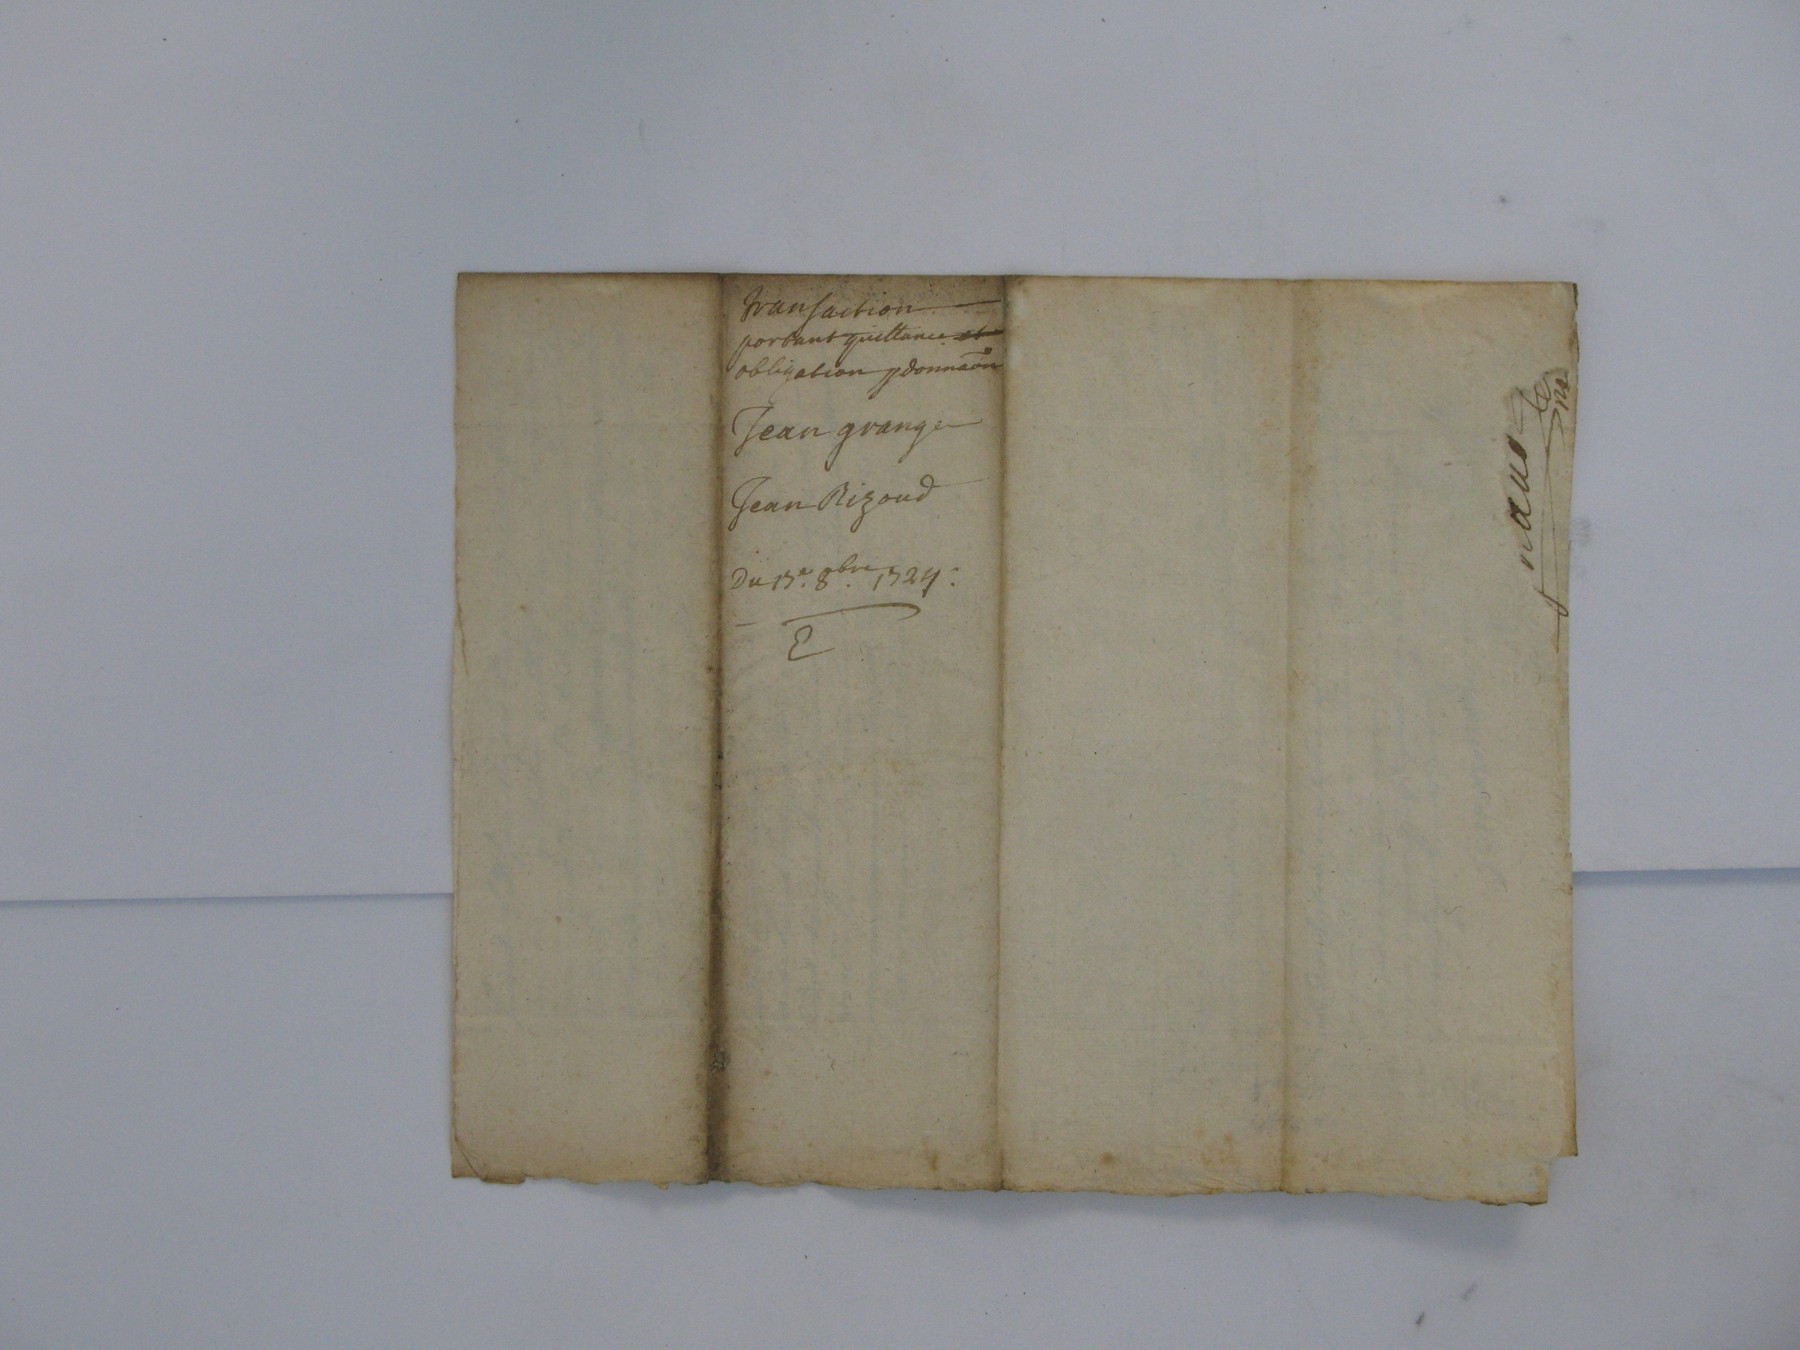 transaction
portant quittance et
obligation & donnaõn
Jean granger
Jean Rigoud
Du 17e. 8bre. 1724.
E